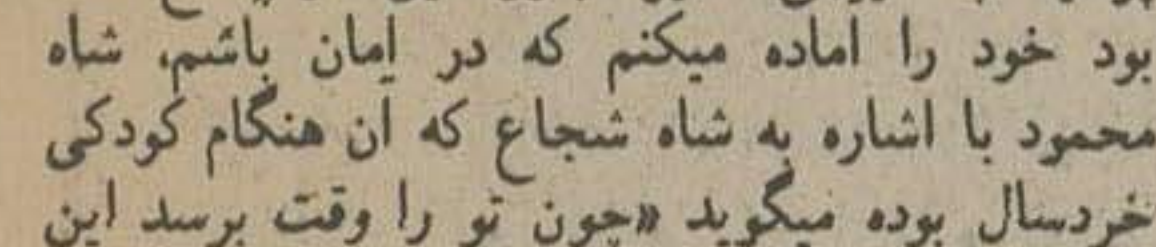 بود خود را اماده میکنم که در امان باشم، شاه
محمود با اشاره به شاه شجاع که ان هنگام کودکی
خردسال بوده میگوید «چون تو را وقت برسد این